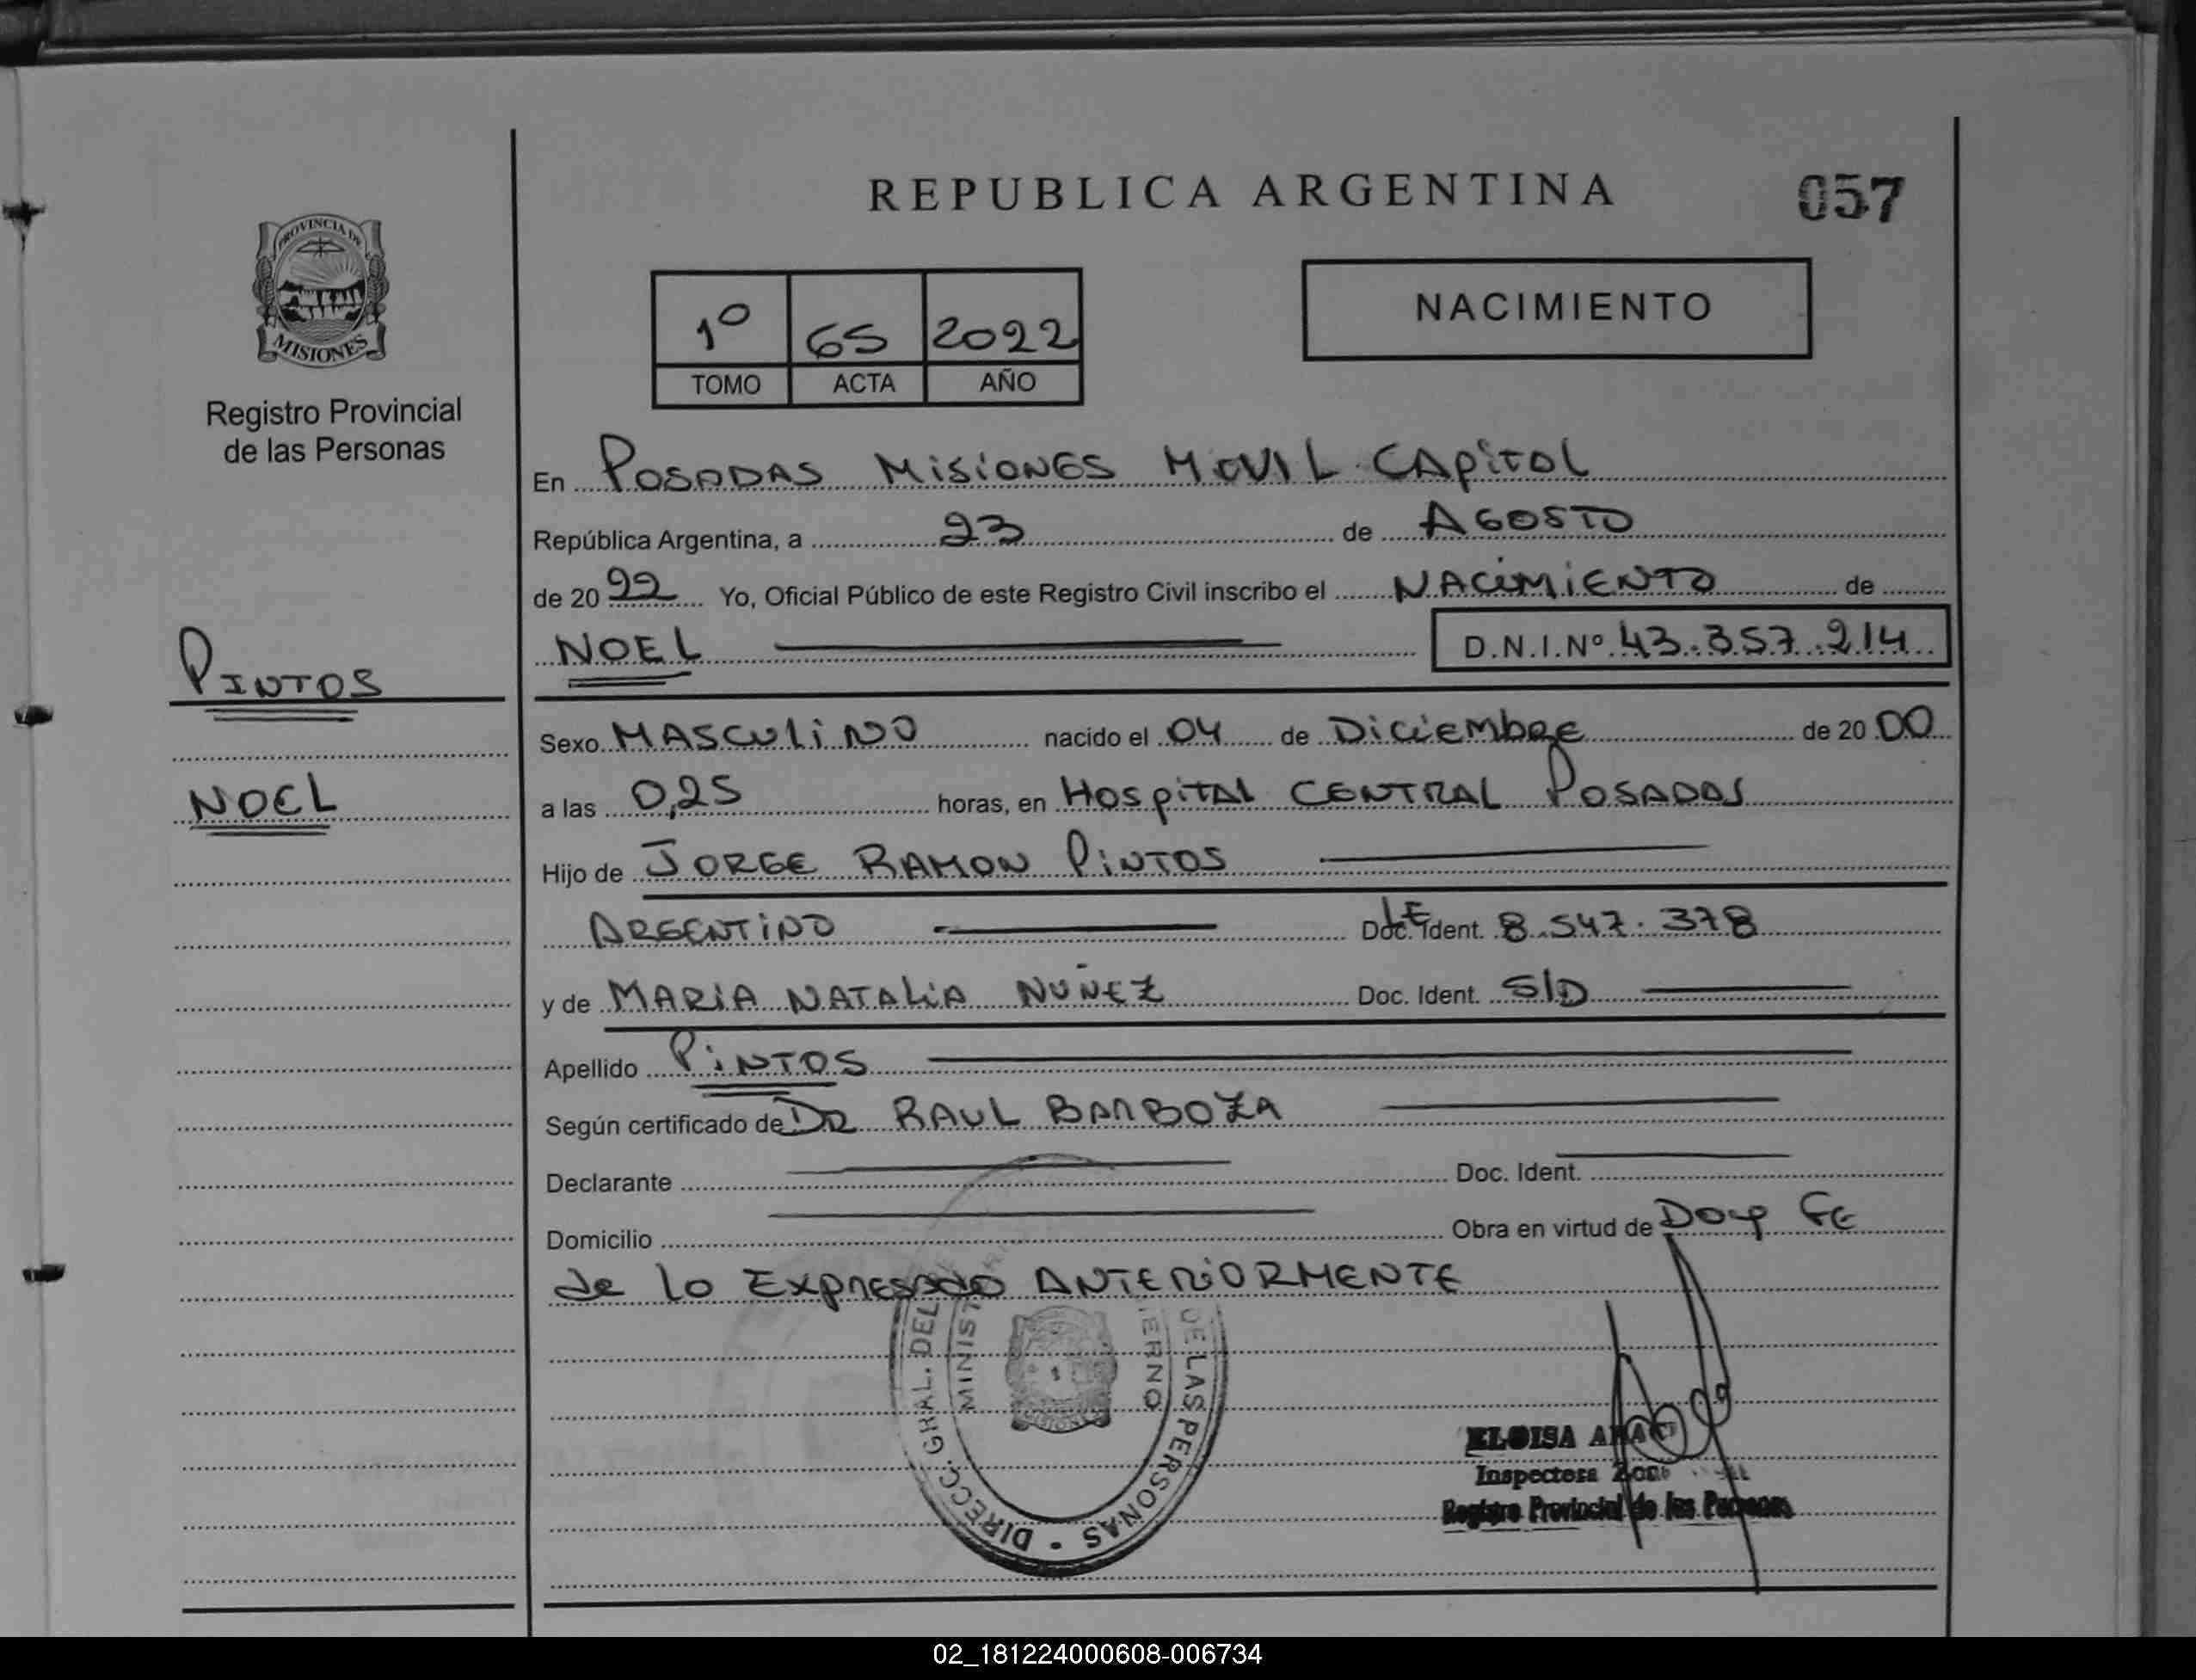 REPUBLICA ARGENTINA
057
PROVINCIA DE
MISIONES
Registro Provincial
de las Personas
1º 65 2022
TOMO ACTA AÑO
NACIMIENTO
En POSADAS MISIONES MOVIL CAPITOL
República Argentina, a 23 de AGOSTO
de 20 22 Yo, Oficial Público de este Registro Civil inscribo el NACIMIENTO de
NOEL D.N.I.Nº 43.357.214
PINTOS
NOEL
Sexo MASCULINO nacido el 04 de DICIEMBRE de 20 00
a las 0,25 horas, en HOSPITAL CENTRAL POSADAS
Hijo de JORGE RAMON PINTOS
ARGENTINO Doc. Ident. LE 8.547.378
y de MARIA NATALIA NUÑEZ Doc. Ident. S/D
Apellido PINTOS
Según certificado de DR RAUL BARBOZA
Declarante Doc. Ident.
Domicilio Obra en virtud de DOY FE
de lo EXPRESADO ANTERIORMENTE
DIRECC. GRAL. DEL DE LAS PERSONAS
ELOISA
Inspectora
Registro Provincial de las Personas
02_181224000608-006734